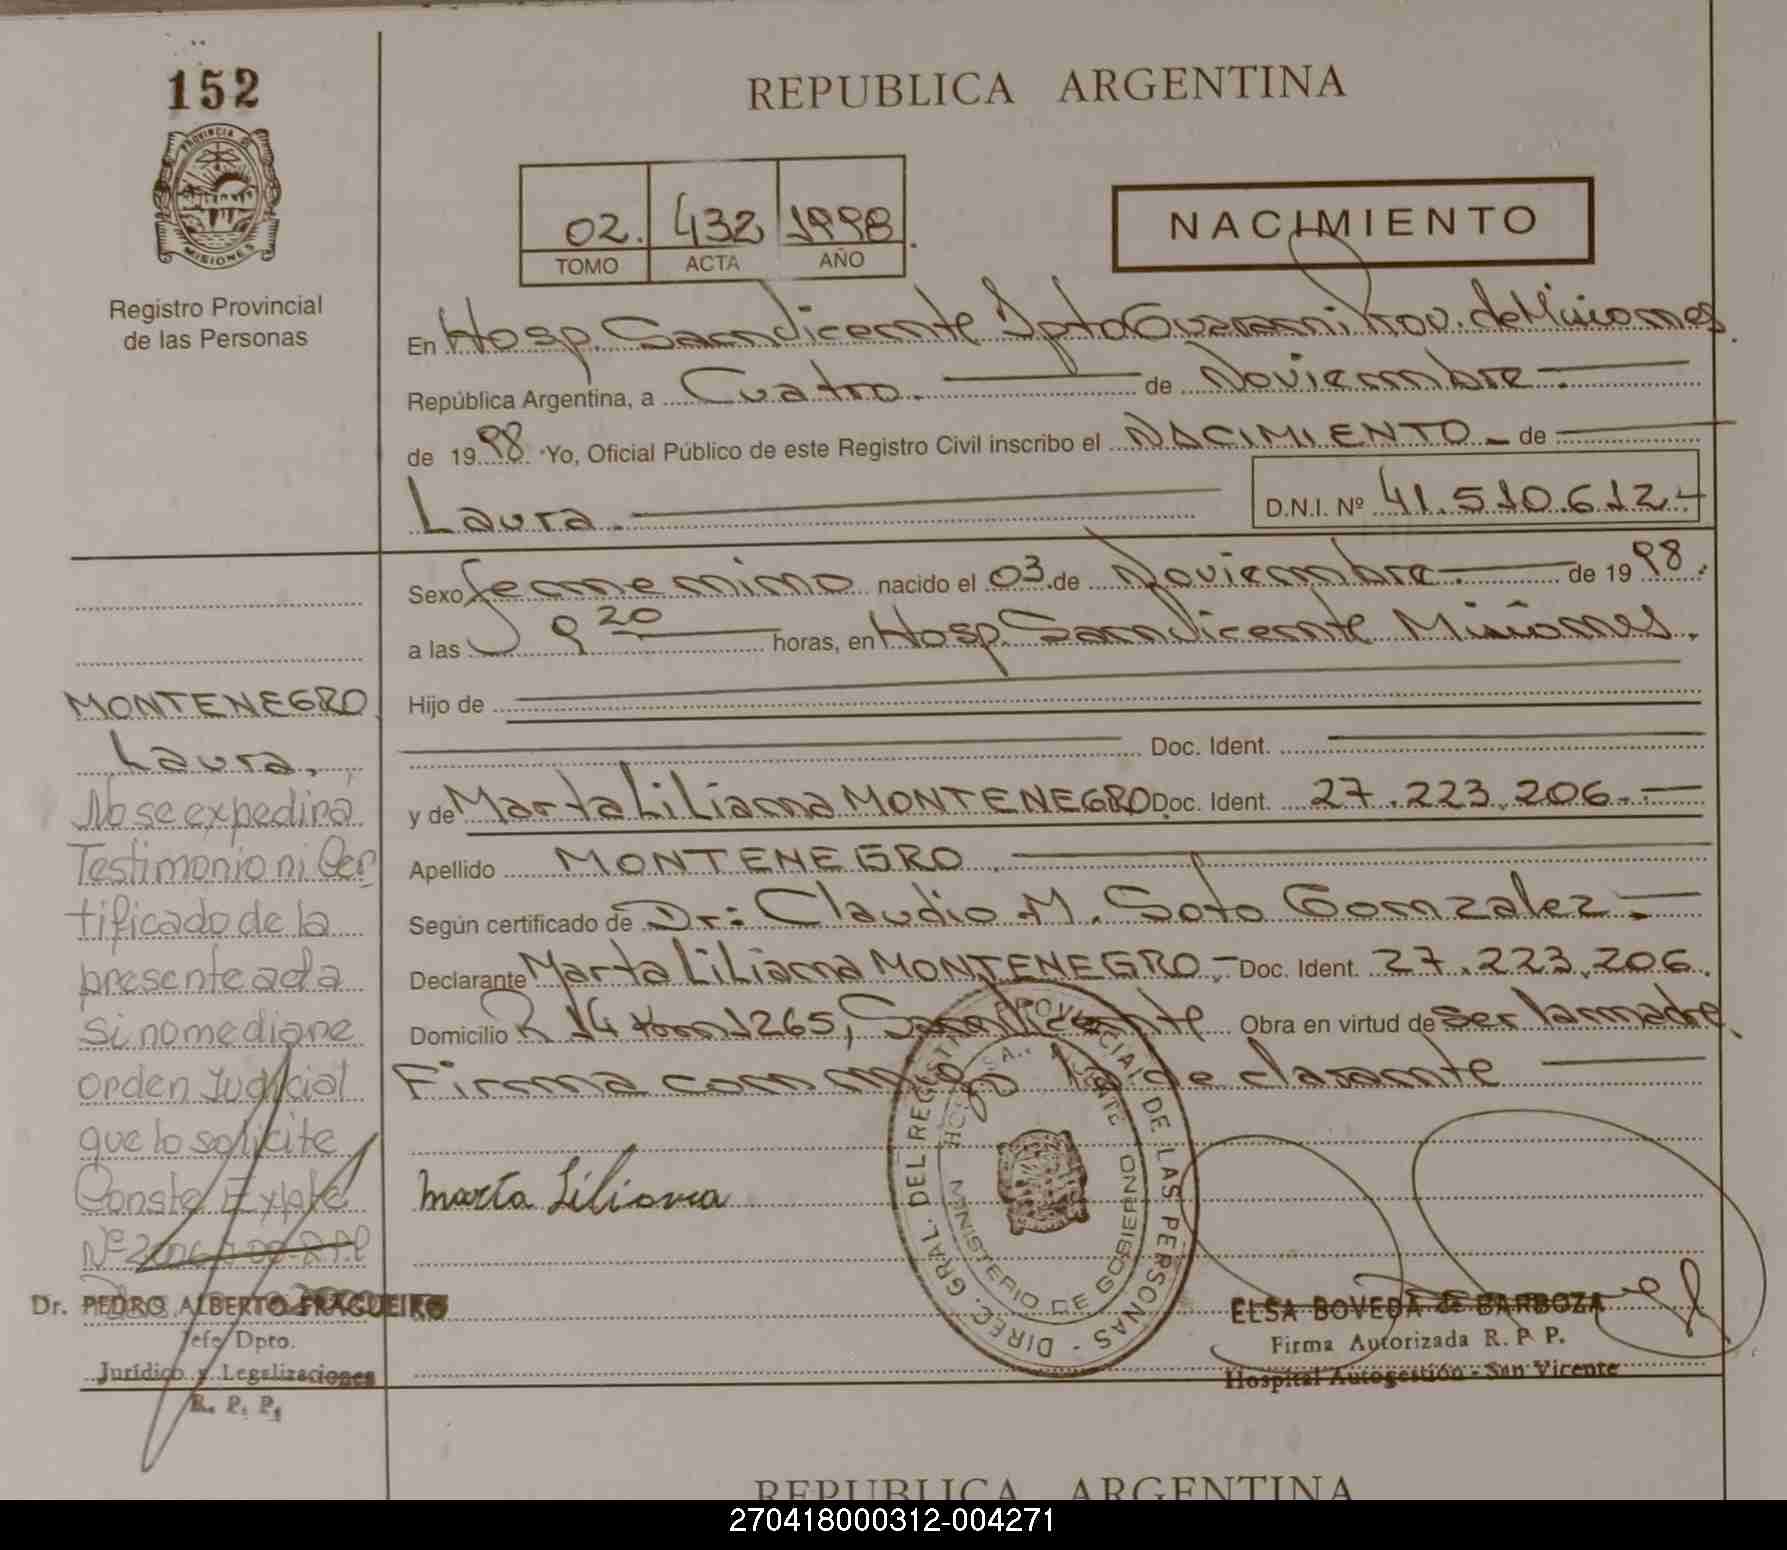 152
PROVINCIA DE
MISIONES
Registro Provincial
de las Personas
REPUBLICA ARGENTINA
02. 432 1998.
TOMO ACTA AÑO
NACIMIENTO
En Hosp. San Vicente Dpto Guarani Prov. de Misiones.
República Argentina, a Cuatro. de Noviembre.
de 1998. Yo, Oficial Público de este Registro Civil inscribo el NACIMIENTO de
Laura. D.N.I. Nº 41.510.612.-
Sexo femenino nacido el 03 de Noviembre. de 1998.
a las 9 20 horas, en Hosp. San Vicente Misiones.
Hijo de
Doc. Ident.
y de Marta Liliana MONTENEGRO Doc. Ident. 27.223.206.-
Apellido MONTENEGRO.
Según certificado de Dr: Claudio M. Soto Gonzalez.-
Declarante Marta Liliana MONTENEGRO.- Doc. Ident. 27.223.206.
Domicilio R 14 Km 1265, San Vicente Obra en virtud de ser la madre,
Firma conmigo la declarante
marta Liliana
MONTENEGRO
Laura.
No se expedira
Testimonio ni Cer
tificado de la
presente acta
si no mediare
orden Judicial
que lo solicite
Conste Expte
Nº
Dr. PEDRO ALBERTO FRAGUEIRO
Jefe Dpto.
Jurídico y Legalizaciones
R. P. P.
DIREC. GRAL. DEL REGISTRO PROVINCIAL DE LAS PERSONAS
MINISTERIO DE GOBIERNO
ELSA BOVEDA de BARBOZA
Firma Autorizada R. P. P.
Hospital Autogestión - San Vicente
REPUBLICA ARGENTINA
270418000312-004271